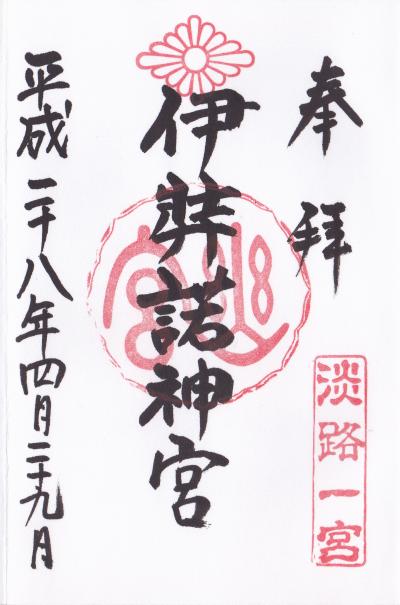 奉拝
淡路一宮
伊弉諾神宮
平成二十八年四月二十九日